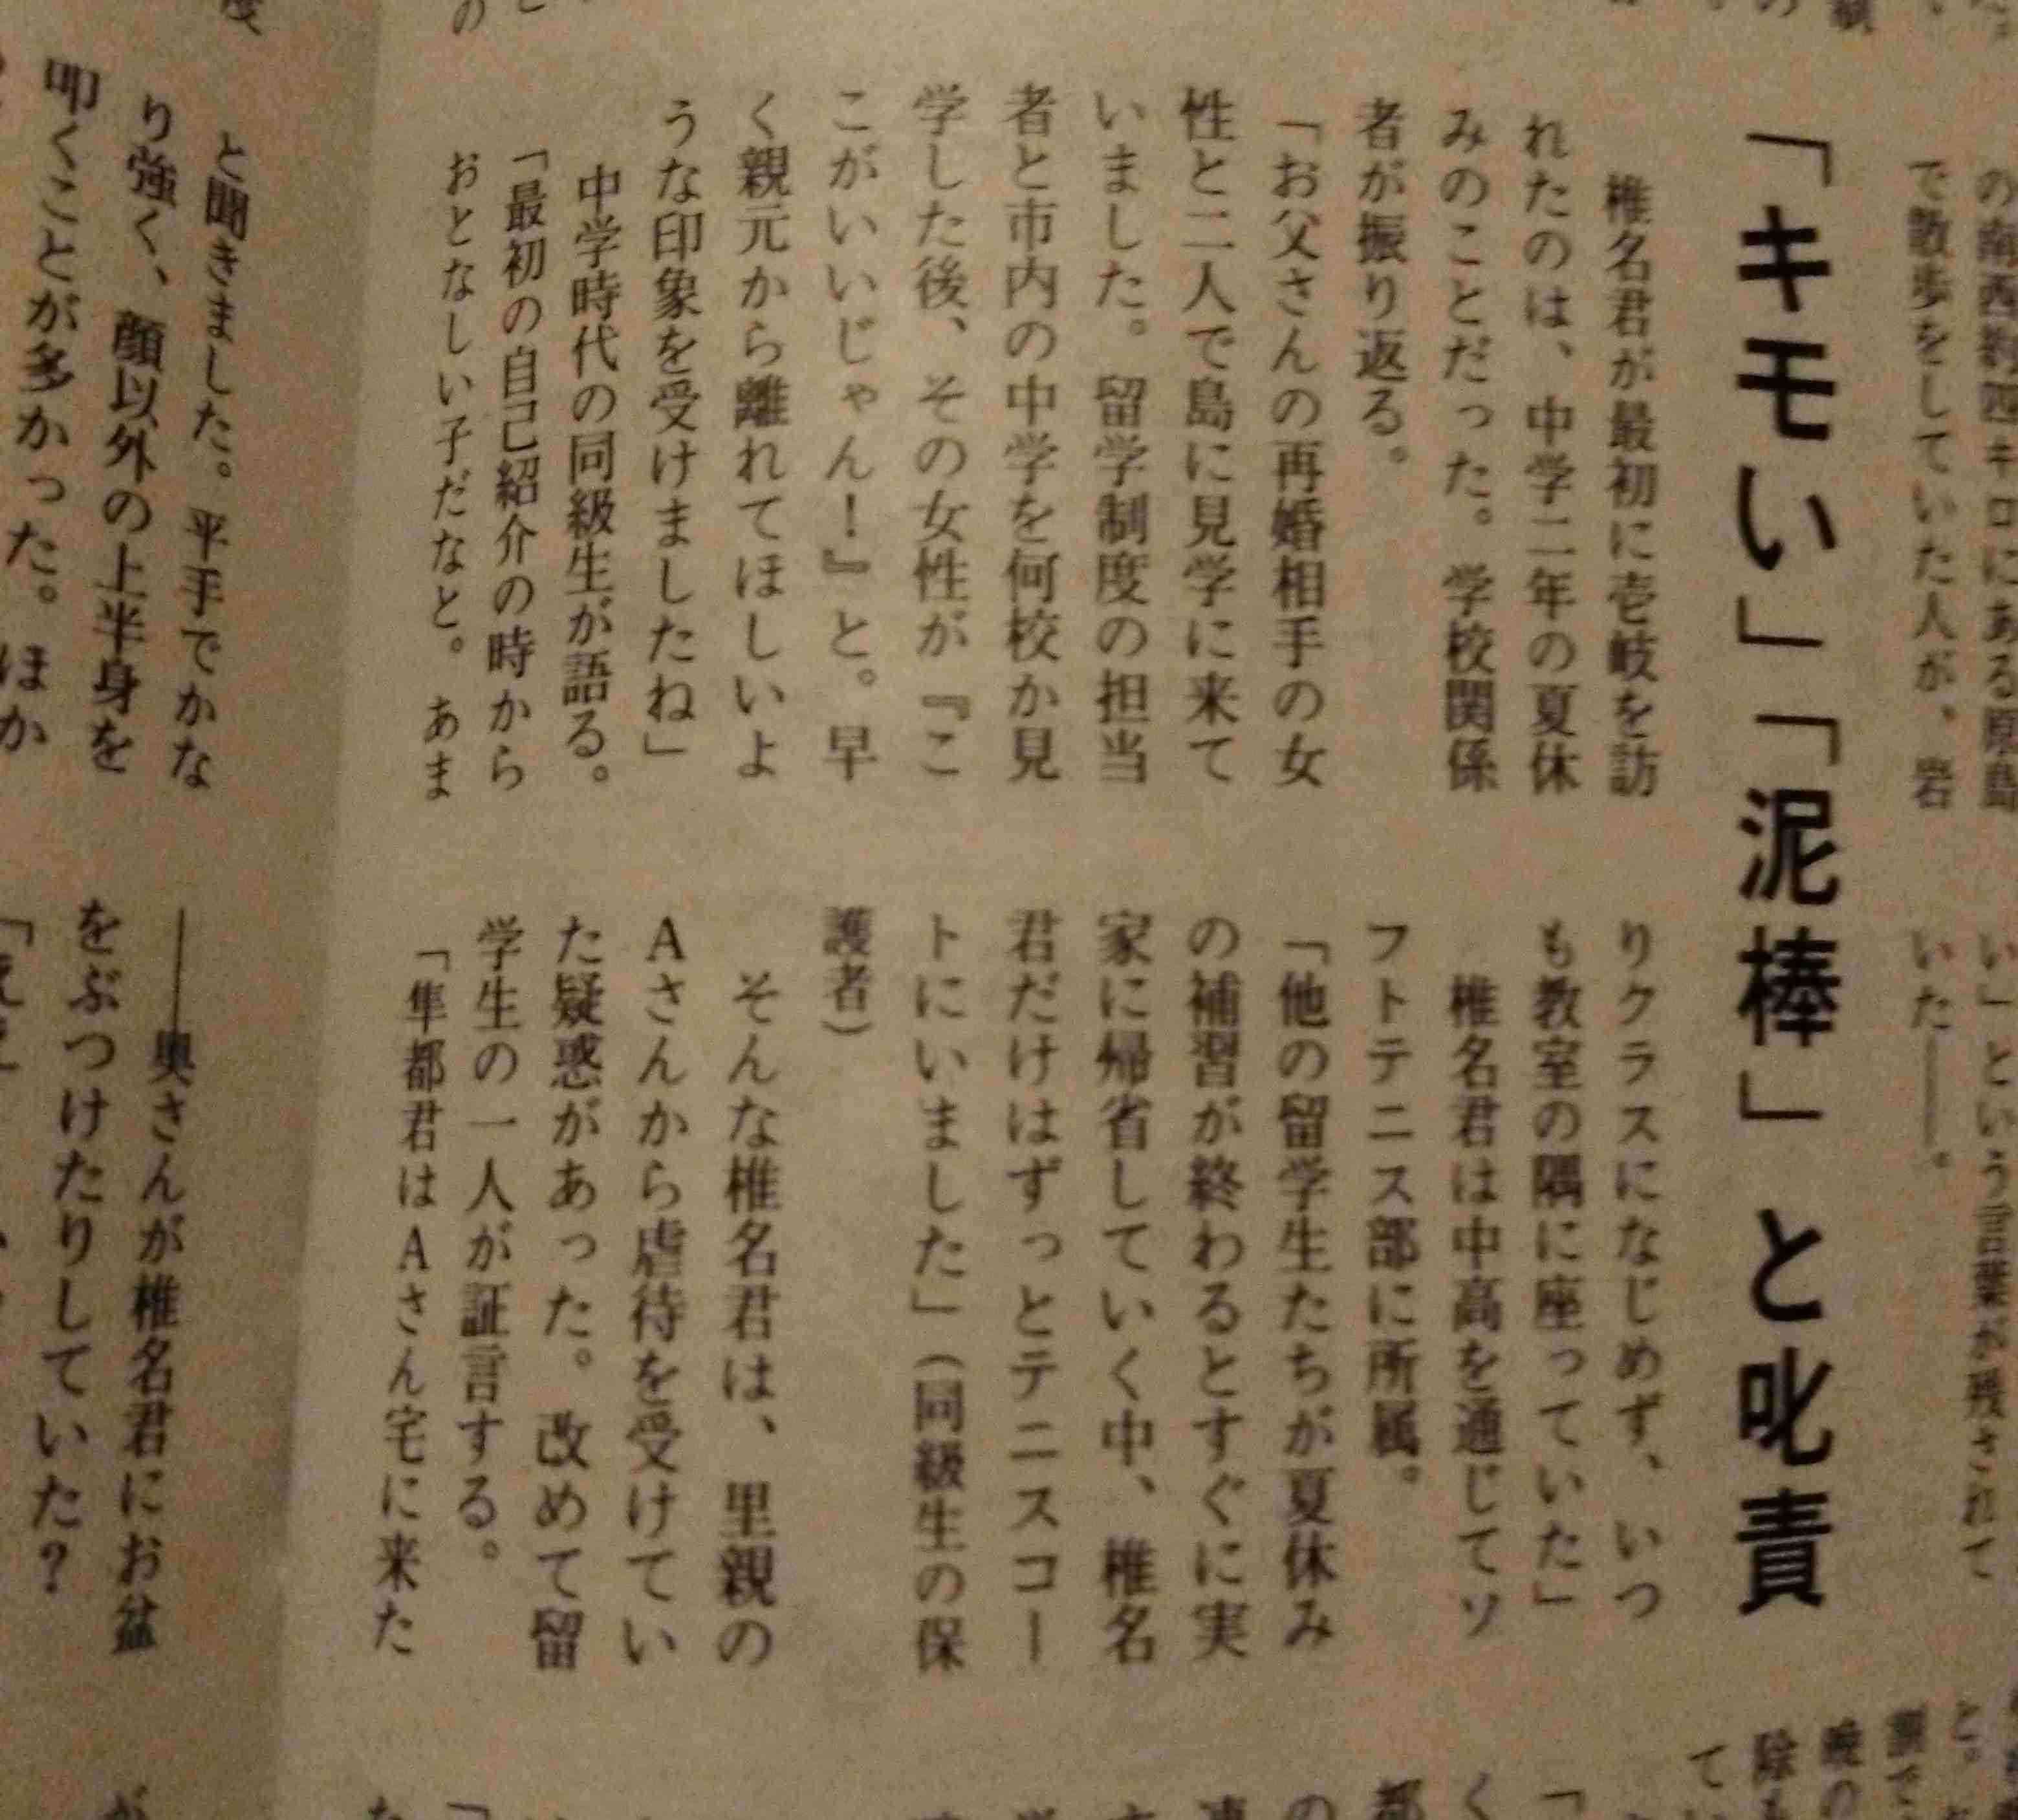 の南西約四キロにある原島
で散歩をしていた人が、岩
い」という言葉が残されて
いた――。
「キモい」「泥棒」と叱責
椎名君が最初に壱岐を訪
れたのは、中学二年の夏休
みのことだった。学校関係
者が振り返る。
「お父さんの再婚相手の女
性と二人で島に見学に来て
いました。留学制度の担当
者と市内の中学を何校か見
学した後、その女性が『こ
こがいいじゃん！』と。早
く親元から離れてほしいよ
うな印象を受けましたね」
中学時代の同級生が語る。
「最初の自己紹介の時から
おとなしい子だなと。あま
りクラスになじめず、いつ
も教室の隅に座っていた」
椎名君は中高を通じてソ
フトテニス部に所属。
「他の留学生たちが夏休み
の補習が終わるとすぐに実
家に帰省していく中、椎名
君だけはずっとテニスコー
トにいました」（同級生の保
護者）
そんな椎名君は、里親の
Aさんから虐待を受けてい
た疑惑があった。改めて留
学生の一人が証言する。
「隼都君はAさん宅に来た
と聞きました。平手でかな
り強く、顔以外の上半身を
叩くことが多かった。ほか
――奥さんが椎名君にお盆
をぶつけたりしていた？